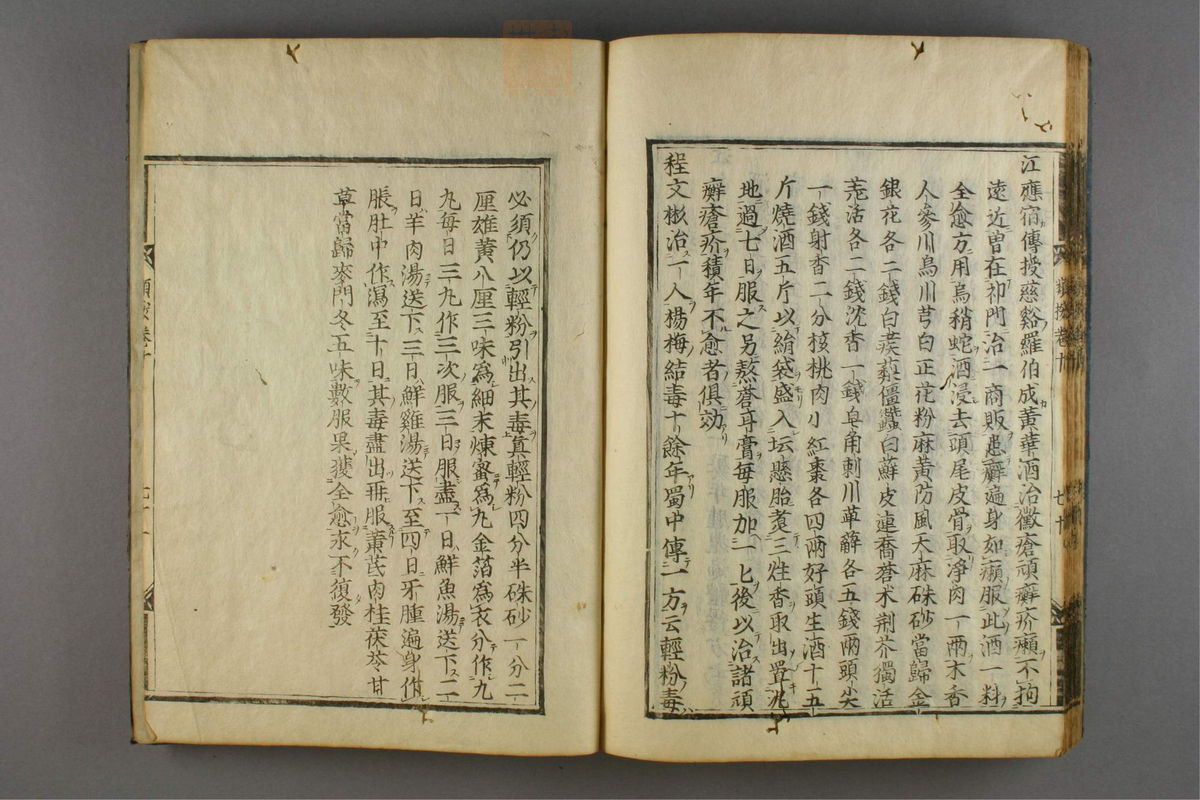 江應宿傳授慈谿羅伯成黃華酒治黴瘡頑癬疥癩不拘
遠近曽在祁門治一商販患癬遍身如癩服此酒一料
全愈方用烏稍蛇酒浸去頭尾皮骨取淨肉一兩木香
人參川烏川芎白正花粉麻黃防風天麻硃砂當歸金
銀花各二錢白蒺藜僵蠶白蘚皮連喬蒼朮荆芥獨活
羗活各二錢沈香一錢皂角刺川萆薢各五錢兩頭尖
一錢射香二分核桃肉小紅棗各四兩好頭生酒十五
斤燒酒五斤以絹袋盛入坛懸胎煮三炷香取出置
地過七日服之另熬蒼耳膏每服加一匕後以治諸頑
癬瘡疥積年不愈者俱効
程文彬治一人楊梅結毒十餘年蜀中傳一方云輕粉毒
七十
必須仍以輕粉引出其毒眞輕粉四分半硃砂一分二
厘雄黃八厘三味爲細末煉蜜爲丸金箔爲衣分作九
丸每日三丸作三次服三日服盡一日鮮魚湯送下二
日羊肉湯送下三日鮮雞湯送下至四日牙腫遍身作
脹肚中作瀉至十日其毒盡出再服黃芪肉桂茯苓甘
草當歸麥門冬五味數服果獲全愈永不復發